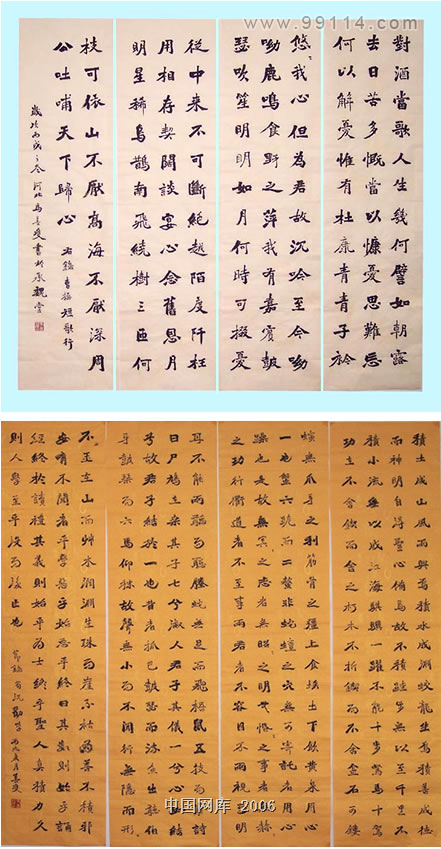 www.99114.com
對酒當歌人生幾何譬如朝露
去日苦多慨當以慷憂思難忘
何以解憂惟有杜康青青子衿
悠々我心但為君故沉吟至今呦
呦鹿鳴食野之苹我有嘉賓鼓
瑟吹笙明明如月何時可掇憂
從中来不可斷絕越陌度阡枉
用相存契闊談宴心念舊恩月
明星稀烏鵲南飛繞樹三匝何
枝可依山不厭高海不厭深周
公吐哺天下歸心 右錄曹操短歌行
歲次丙戌之冬河北馬善書於承魏堂
積土成山風雨興焉積水成淵蛟龍生焉積善成德
而神明自得聖心備焉故不積跬步無以至千里不
積小流無以成江海騏驥一躍不能十步駑馬十駕
功在不舍鍥而舍之朽木不折鍥而不舍金石可鏤
螾無爪牙之利筋骨之强上食埃土下飲黄泉用心
一也蟹六跪而二螯非蛇蟺之穴無可寄託者用心
躁也是故無冥々之志者無昭々之明無惛々之事者無赫々
之功行衢道者不至事两君者不容目不能两視而明
耳不能两聽而聰螣蛇無足而飛梧鼠五技而窮詩
曰尸鳩在桑其子七兮淑人君子其儀一兮心如結
兮故君子結於一也昔者瓠巴鼓瑟而流魚出聽伯
牙鼓琴而六馬仰秣故聲無小而不聞行無隱而不形
玉在山而草木潤淵生珠而崖不枯為善不積邪
安有不聞者乎學惡乎始惡乎終曰其數則始乎誦
經終於讀禮其義則始乎為士終乎聖人真積力久
則人學至乎没而後止也 節錄荀況勸學 丙戌五月善
中国网库 2006